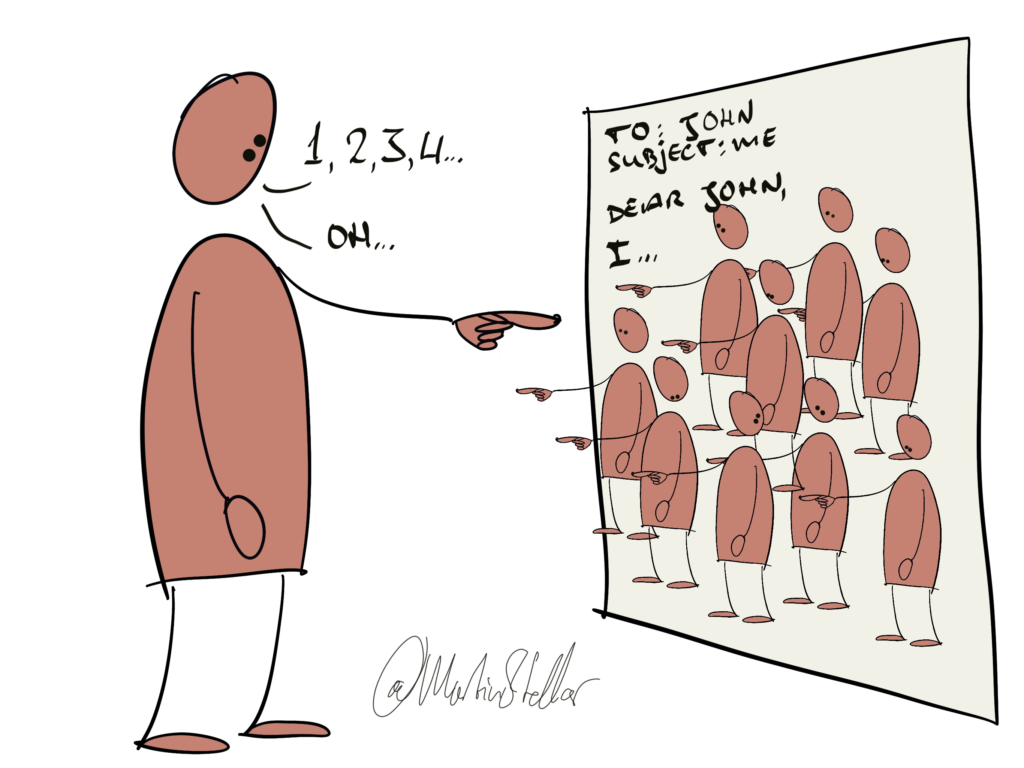 1, 2, 3, 4...
OH...
TO: JOHN
SUBJECT: ME
DEAR JOHN,
I...
@MartinStellar